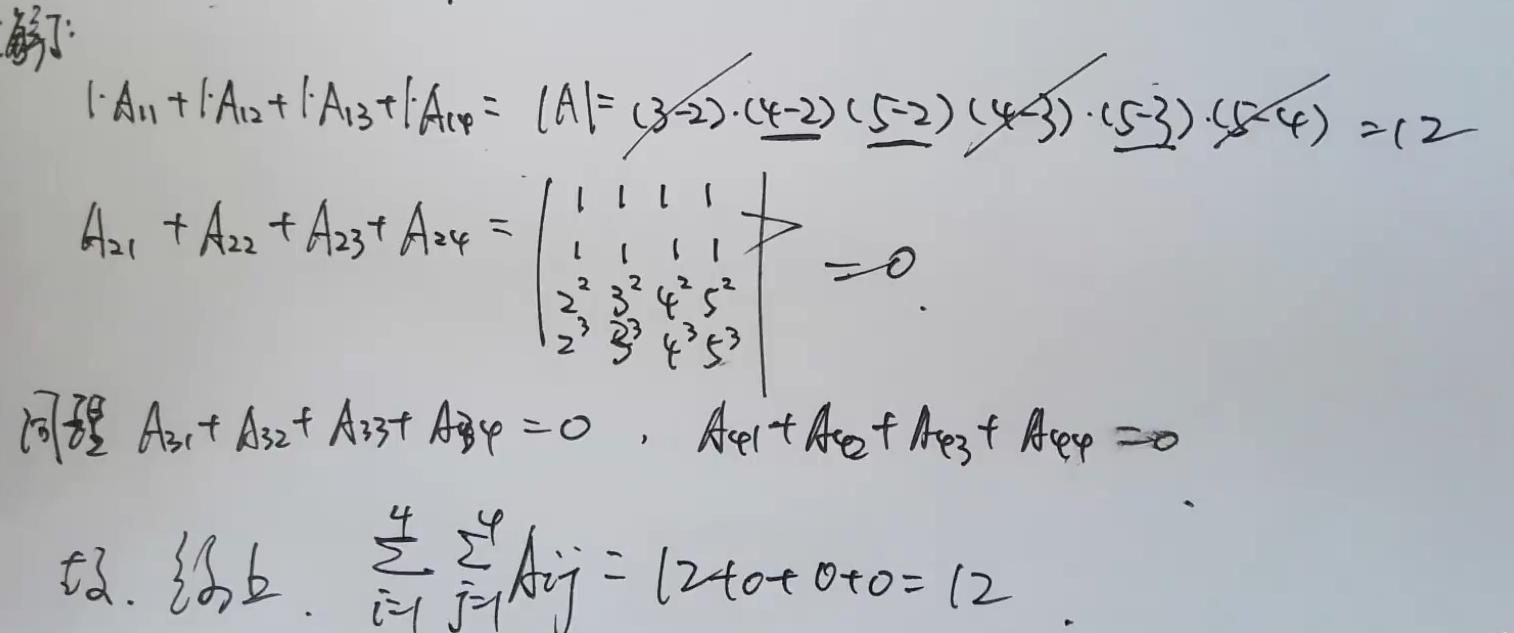 解:
1·A₁₁+1·A₁₂+1·A₁₃+1·A₁₄=|A|=(3-2)·(4-2)(5-2)(4-3)·(5-3)·(5-4)=12
A₂₁+A₂₂+A₂₃+A₂₄=
1 1 1 1
1 1 1 1
=0.
2² 3² 4² 5²
2³ 3³ 4³ 5³
同理 A₃₁+A₃₂+A₃₃+A₃₄=0, A₄₁+A₄₂+A₄₃+A₄₄=0.
故. 综上. ∑_{i=1}^{4} ∑_{j=1}^{4} A_{ij}=12+0+0+0=12.